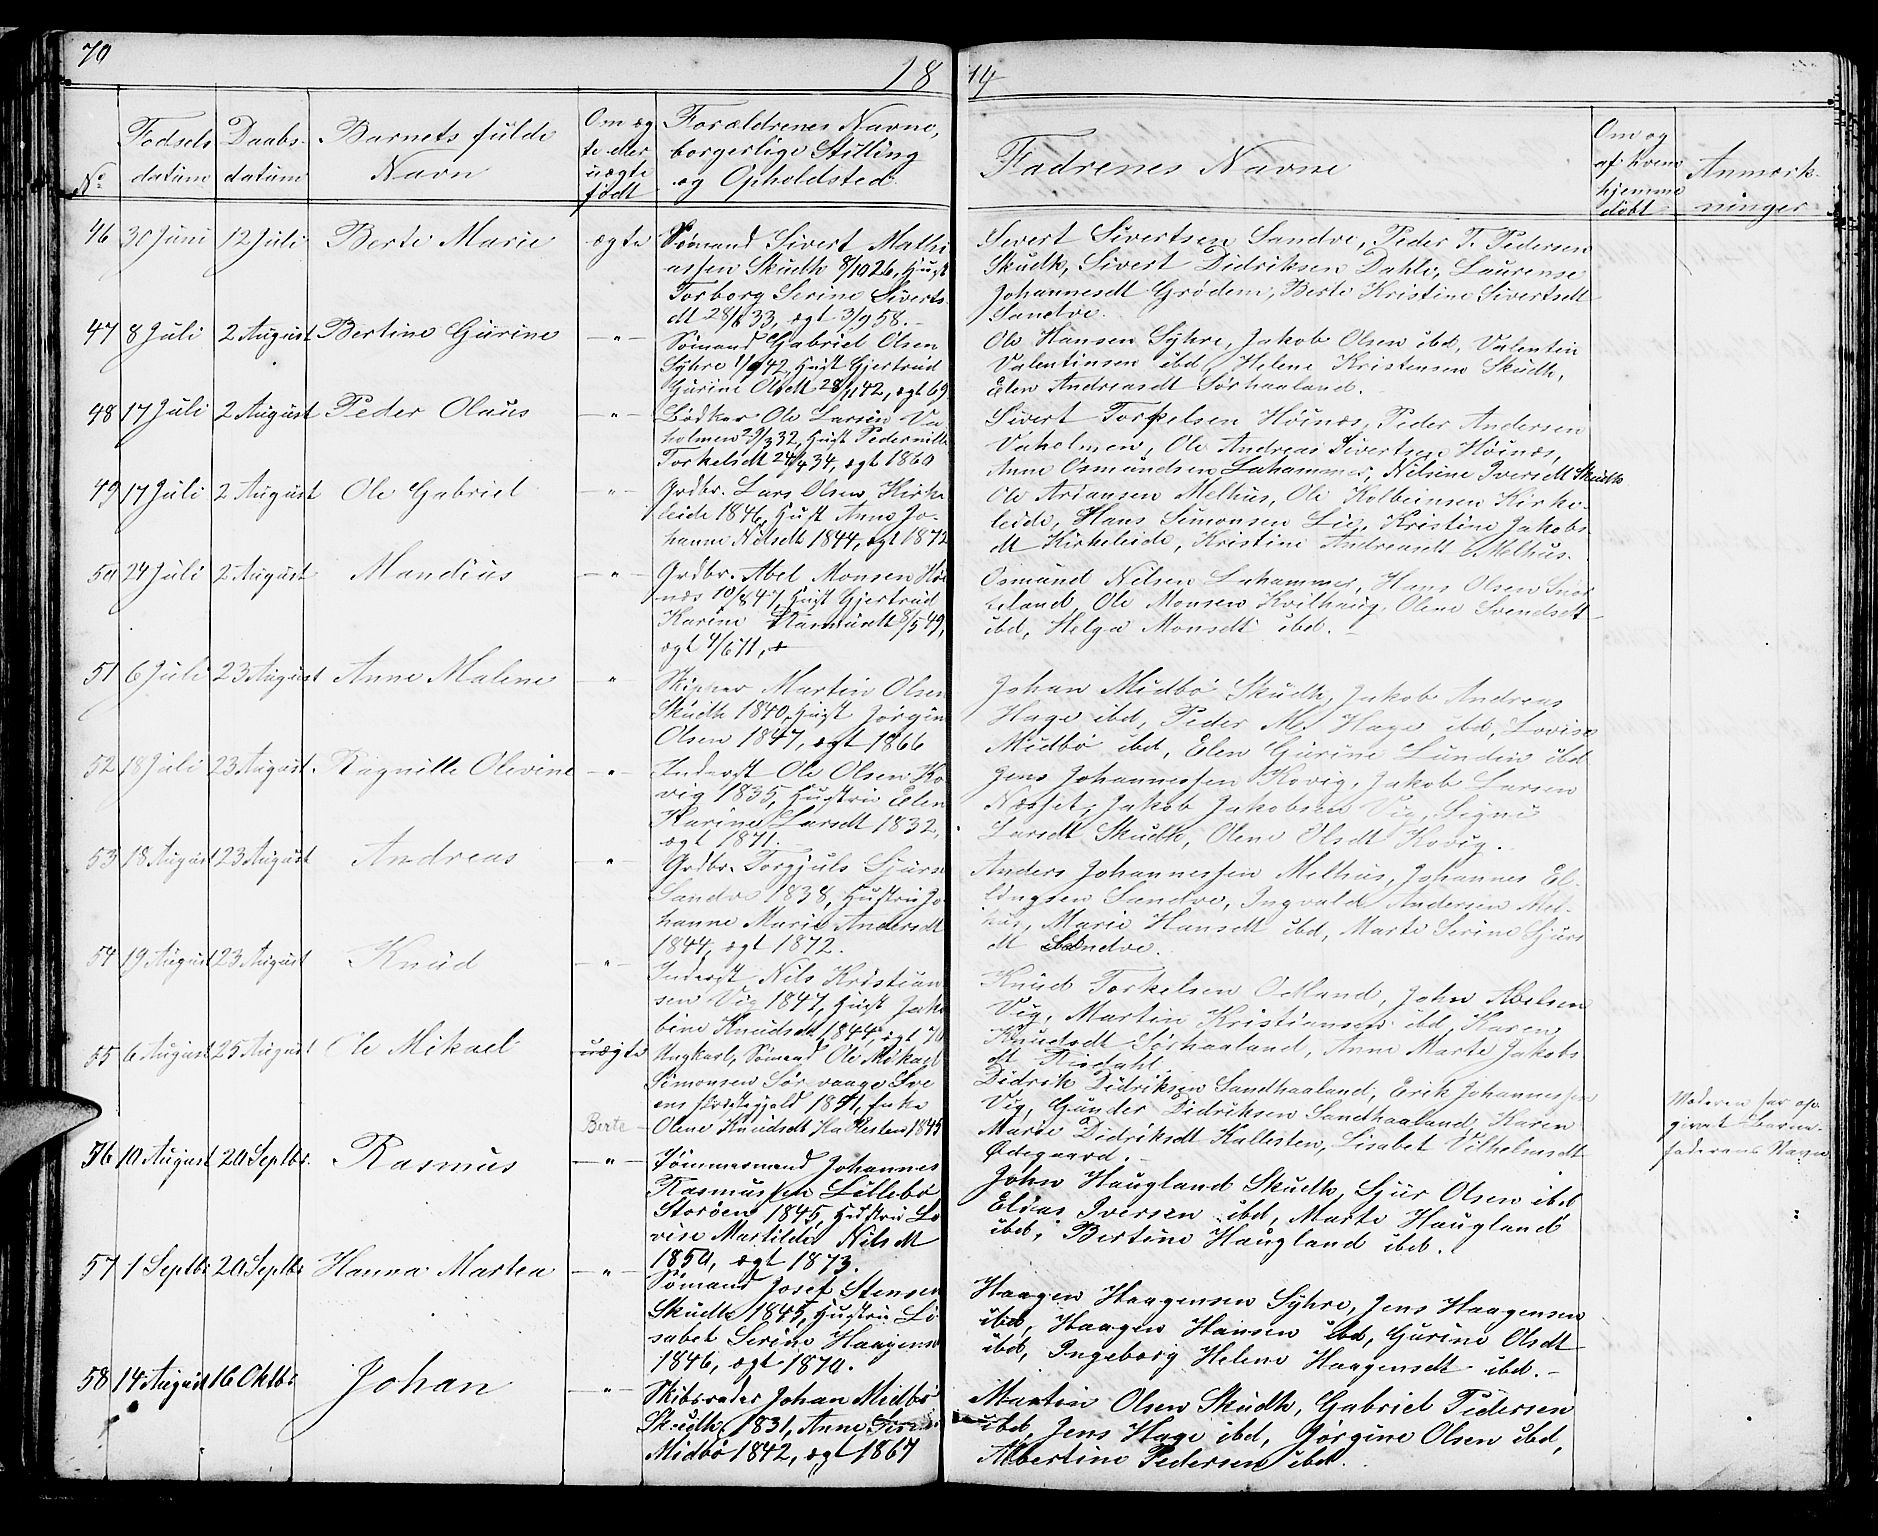 70
18 74
No
Fødsels datum
Daabs datum
Barnets fulde Navn
Om ægte eller uægte født
Forældrenes Navne, borgerlige Stilling og Opholdsted.
Fadrenes Navne
Om og af hvem hjemme døbt
Anmærkninger
46 30 Juni 12 Juli Berte Marie ægte
Sømand Sivert Mathi
assen Skudh 8/10 26, Hust
Torborg Serine Siverts
dt 28/ 33, ægt 3/9 58.
Sivert Sivertsen Sandve, Peder T. Pedersen
Skudh, Sivert Didriksen Dahle, Laurense
Johannesdt Grødem, Berte Kristine Sivertsdt
Sandve.
47 8 Juli 2 August Bertine Gurine - " -
Sømand Gabriel Olsen
Syhre 42, Hust Gjertrud
Gurine Olsdt 28/ 42, ægt 69
Ole Hansen Syhre, Jakob Olsen ibd, Valentin
Valentinsen ibd, Helene Kristensen Skudh,
Elen Andreasdt Sørhaaland.
48 17 Juli 2 August Peder Olaus - " -
Bødker Ole Larsen Va
holmen 29/3 32, Hust Pedernille
Torkelsdt 24/4 34, ægt 1860
Sivert Torkelsen Høinæs, Peder Andersen
Vaholmen, Ole Andreas Sivertsen Høinæs,
Anne Osmundsen Lahammer, Nilsine Iversdt Skudh
49 17 Juli 2 August Ole Gabriel - " -
Grdbr. Lars Olsen Kirke
leide 1846, Hust Anne Jo-
hanne Nilsdt 1844, ægt 1872
Ole Ariansen Melhus, Ole Kolbeinsen Kirke-
leide, Hans Simonsen Lie, Kristine Jakobs
dt Kirkeleide, Kristine Andreasdt Melhus.
50 24 Juli 2 August Mandius - " -
Grdbr. Abel Monsen Høi
næs 10/8 47, Hust Gjertrud
Karine 8/5 49,
ægt 4/6 71,
Osmund Nilsen Lahammer, Hans Olsen Snør
teland, Ole Monsen Kvilhaug, Olene Svendsdt
ibd, Helga Monsdt ibd.
51 6 Juli 23 August Anne Malene "
Skipper Martin Olsen
Skudh 1840, Hust Jørgine
Olsen 1847, ægt 1866
Johan Midbø Skudh, Jakob Andreas
Hage ibd, Peder M. Hage ibd, Lovise
Midbø ibd, Elen Gurine Lunden ibd
52 18 Juli 23 August. Ragnille Olevine - " -
Inderst Ole Olsen Ko
vig 1835, Hustru Elen
Karine Larsdt 1832,
ægt 1871.
Jens Johannessen Kovig, Jakob Larsen
Næsset, Jakob Jakobsen Vig, Signe
Larsdt Skudh, Olene Olsdt Kovig.
53 18 August 23 August Andreas - " -
Grdbr. Torgjuls Sjurs
Sandve 1838, Hustru Jo-
hanne Marie Andersdt
1844, ægt 1872.
Anders Johannessen Melhus, Johannes El-
lingsen Sandve, Ingvald Andersen Mel-
hus, Marie Hansdt ibd, Marte Serine Sjurs
dt Sandve.
54 19 August 23 August Knud - " -
Inderst Nils Kristian
sen Vig 1847, Hust Jako
bine Knudsdt 1844, ægt 70
Knud Torkelsen Ødland, John Abelsen
Vig, Martin Kristiansen ibd, Karen
Knudsdt Sørhaaland, Anne Marte Jakobs
dt
55 6 August 25 August Ole Mikael uægte
Ungkarl, Sømand Ole Mikael
Simonsen Sørvaage Sve
ens 1851, Enke
Berte Olene Knudsdt 1845
Didrik Didriksen Sandhaaland, Erik Johannessen
Vig, Gunder Didriksen Sandhaaland, Karen
Marie Didriksdt Kallesten, Lisabet Vilhelmsdt
Ødegaard.
Moderen har op
givet Barne-
faderens Navn
56 10 August 20 Septbr. Rasmus - " -
Tømmermand Johannes
Rasmussen Lillebø
Storøen 1845, Hustru Lo
vise Martilde Nilsdt
1850, ægt 1873.
John Haugland Skudh, Sjur Olsen ibd
Elias Iversen ibd, Marte Haugland
ibd, Bertine Haugland ibd.
57 1 Septbr 20 Septbr Hanna Martea - " -
Sømand Josef Stensen
Skudh 1845, Hustru Li
sabet Serine Haagens
1846, ægt 1870.
Haagen Haagensen Syhre, Jens Haagensen
ibd, Haagen Hansen ibd, Gurine Olsdt
ibd, Ingeborg Helene Haagensdt ibd.
58 14 August 16 Oktbr Johan - " -
Skibsreder Johan Midbø
Skudh, 1831, Anne
Midbø 1842, ægt 1867
Martin Olsen Skudh, Gabriel Pedersen
ibd, Jens Hage ibd, Jørgine Olsen ibd,
Albertine Pedersen ibd.